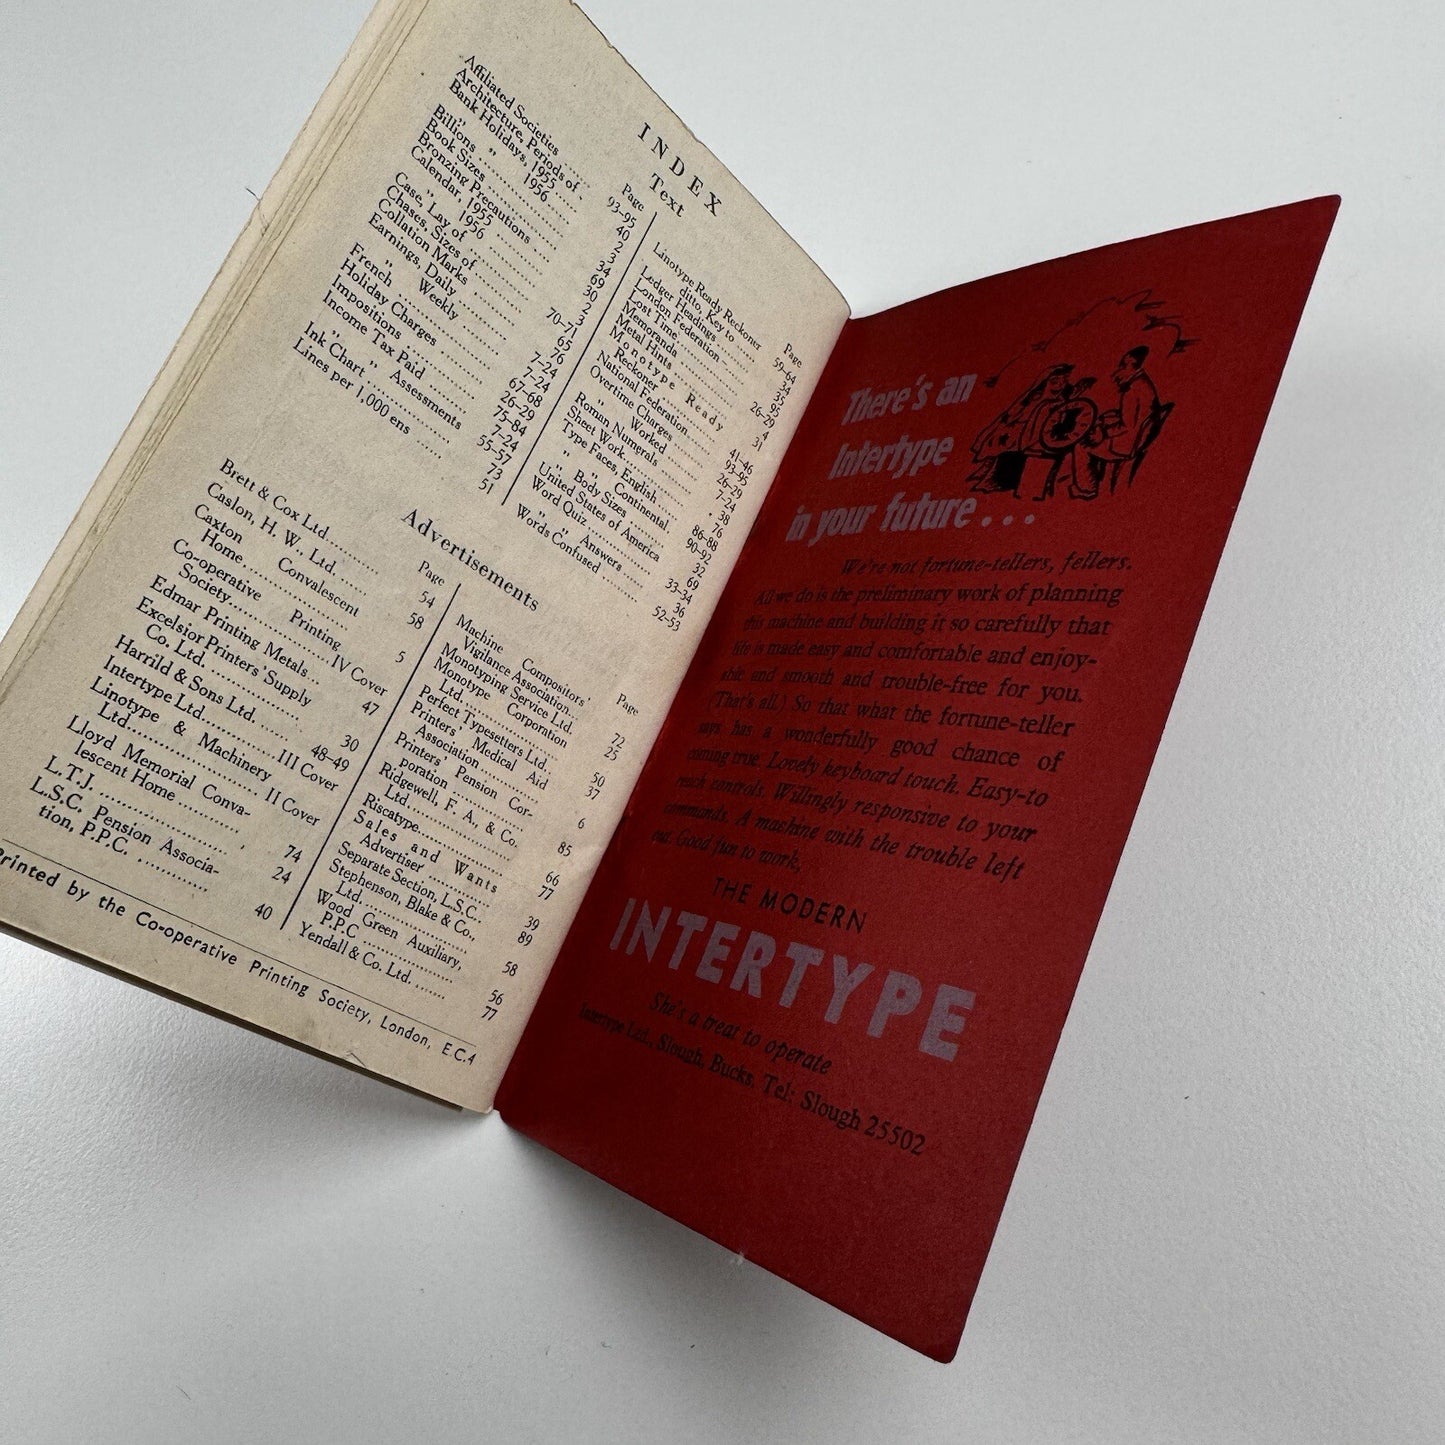 INDEX
Text
Page
Affiliated Societies ...... 93–95
Architecture, Periods of . 40
Bank Holidays, 1955 ...... 2
" " 1956 ...... 3
Billions ...... 34
Book Sizes ...... 69
Bronzing Precautions . 30
Calendar, 1955 ...... 2
" 1956 ...... 3
Case, Lay of ...... 70–71
Chases, Sizes of ...... 65
Collation Marks ...... 76
Earnings, Daily ...... 7–24
" Weekly ...... 7–24
French ...... 67–68
Holiday Charges ...... 26–29
Impositions ...... 75–84
Income Tax Paid ...... 7–24
" " Assessments 55–57
Ink Chart ...... 73
Lines per 1,000 ens ...... 51
Page
Linotype Ready Reckoner
ditto, Key to ...... 59–64
Ledger Headings ...... 34
London Federation ...... 95
Lost Time ...... 26–29
Memoranda ...... 4
Metal Hints ...... 31
Monotype Ready
Reckoner ...... 41–46
National Federation ...... 93–95
Overtime Charges ...... 26–29
" Worked ...... 7–24
Roman Numerals ...... 38
Sheet Work ...... 76
Type Faces, English ...... 86–88
" " Continental. 90–92
" Body Sizes ...... 32
United States of America 69
Word Quiz ...... 33–34
" " Answers ...... 36
Words Confused ...... 52–53
Advertisements
Page
Brett & Cox Ltd ...... 54
Caslon, H. W., Ltd. ...... 58
Caxton Convalescent
Home ...... 5
Co-operative Printing
Society ...... IV Cover
Edmar Printing Metals... 47
Excelsior Printers' Supply
Co. Ltd. ...... 30
Harrild & Sons Ltd. ...... 48–49
Intertype Ltd ...... III Cover
Linotype & Machinery
Ltd ...... II Cover
Lloyd Memorial Conva-
lescent Home ...... 74
L.T.J. ...... 24
L.S.C. Pension Associa-
tion, P.P.C. ...... 40
Page
Machine Compositors'
Vigilance Association... 72
Monotyping Service Ltd. 25
Monotype Corporation
Ltd. ...... 50
Perfect Typesetters Ltd., 37
Printers' Medical Aid
Association ...... 6
Printers' Pension Cor-
poration ...... 85
Ridgewell, F. A., & Co.
Ltd. ...... 66
Riscatype ...... 77
Sales and Wants
Advertiser ...... 39
Separate Section, L.S.C.. 89
Stephenson, Blake & Co.,
Ltd. ...... 58
Wood Green Auxiliary,
P.P.C ...... 56
Yendall & Co. Ltd. ...... 77
Printed by the Co-operative Printing Society, London, E.C.4
There's an
Intertype
in your future . . .
We're not fortune-tellers, fellers.
All we do is the preliminary work of planning
this machine and building it so carefully that
life is made easy and comfortable and enjoy-
able and smooth and trouble-free for you.
(That's all.) So that what the fortune-teller
says has a wonderfully good chance of
coming true. Lovely keyboard touch. Easy-to
reach controls. Willingly responsive to your
commands. A machine with the trouble left
out. Good fun to work,
THE MODERN
INTERTYPE
She's a treat to operate
Intertype Ltd., Slough, Bucks, Tel: Slough 25502